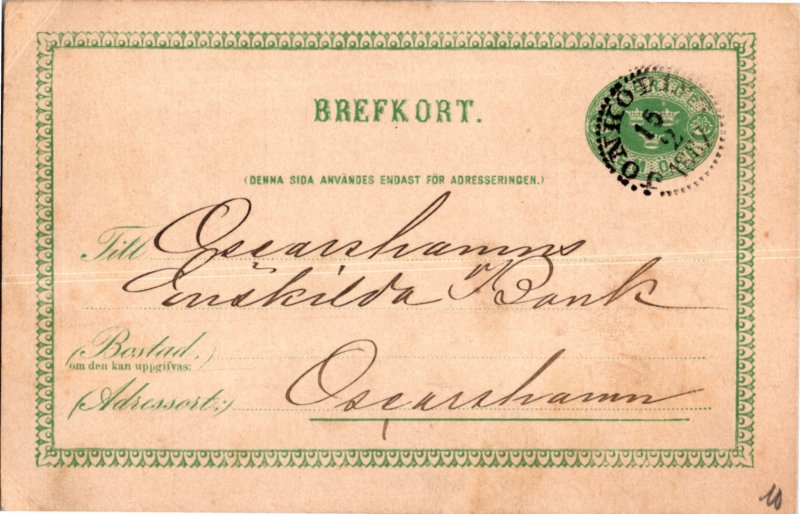 BREFKORT.
JÖNKÖPING
15
2
(DENNA SIDA ANVÄNDES ENDAST FÖR ADRESSERINGEN.)
Till Oscarshamns
Enskilda Bank
(Bostad,)
om den kan uppgifvas:
(Adressort:) Oscarshamn
10